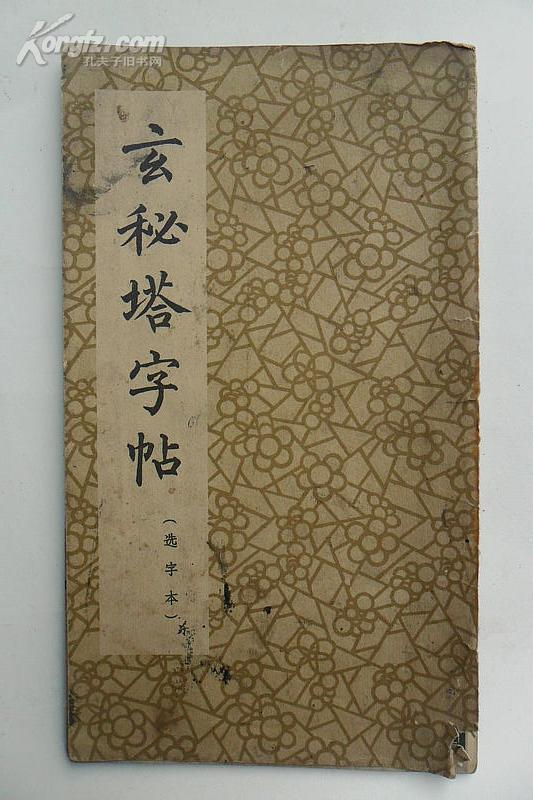 Kongfz.com
孔夫子旧书网
玄秘塔字帖
(选字本)